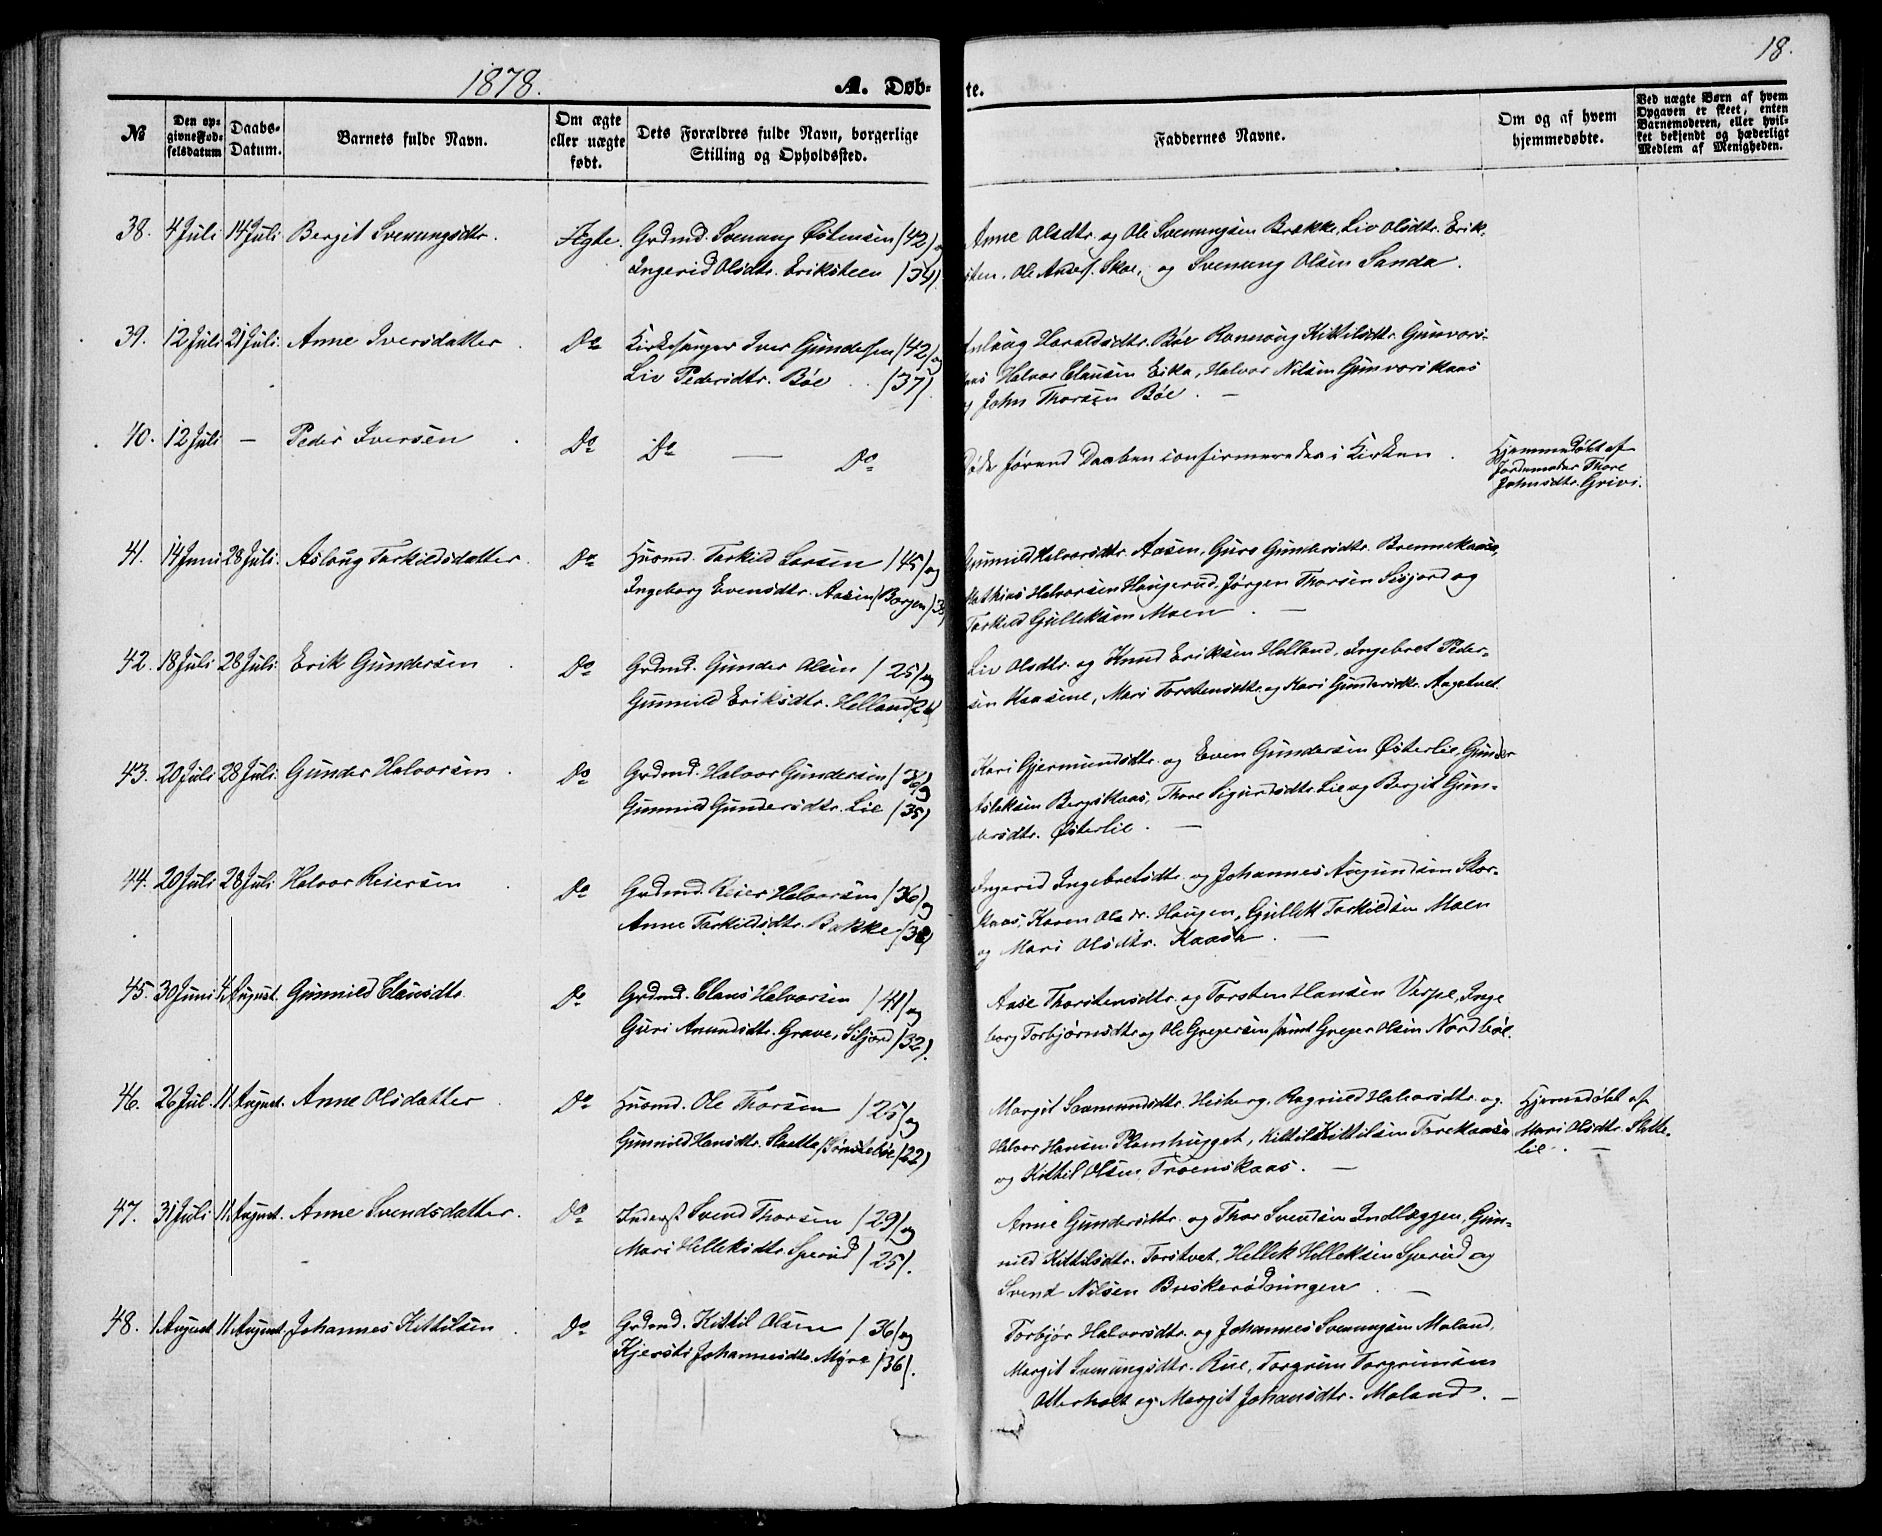 18.
1878.
A. Døb-
te.
No
Den op-
givne Fød-
selsdatum
Daabs-
Datum.
Barnets fulde Navn.
Om ægte
eller uægte
født.
Dets Forældres fulde Navn, borgerlige
Stilling og Opholdssted.
Faddernes Navne.
Om og af hvem
hjemmedøbte.
Ved uægte Børn af hvem
Opgaven er skeet, enten
Barnemoderen, eller hvil-
ket bekjendt og hæderligt
Medlem af Menigheden.
38. 4 Juli 14 Juli Bergit Svenungsdtr. Ægte. Grdmd. Svenung Østensen (42) og
Ingerid Olsdtr. Eriksteen (34).
Anne Olsdtr. og Ole Svenungsen Brække, Liv Olsdtr. Erik-
sten, Ole Skoe, og Svenung Olsen Sanda.
39. 12 Juli 21 Juli. Anne Iversdatter Do Kirkesanger Iver Gundersen (42) og
Liv Pedersdtr. Bøe (37).
Aslaug Haraldsdtr. Bøe Rannoug Kittilsdtr. Gunvors-
kaas Halvor Clausen Eika, Halvor Nilsen Gunvorskaas
og John Thorsen Bøe.
40. 12 Juli — Peder Iversen Do Do — Do
Døde førend Daaben confirmeredes i Kirken.
Hjemmedøbt af
Jordemoder Thore
Johnsdtr. Grivi.
41. 14 Juni 28 Juli. Aslaug Tarkildsdatter. Do Husmd. Tarkild Larsen (45) og
Ingeborg Evensdtr. Aasen (Borgen)
Gunnild Halvorsdtr. Aasen, Guro Gundersdtr. Brennekaasa,
Mathias Halvorsen Haugerud, Jørgen Thorsen Sisjord og
Tarkild Gjulleksen Moen.
42. 18 Juli 28 Juli. Erik Gundersen Do Grdmd. Gunder Olsen (25) og
Gunnild Eriksdtr. Helland
Liv Olsdtr. og Knud Eriksen Helland, Ingebret Peder-
sen Kaasene, Mari Torstensdtr. og Kari Gundersdtr. Aagetvet.
43. 20 Juli 28 Juli. Gunder Halvorsen Do Grdmd. Halvor Gundersen (36) og
Gunnild Gundersdtr. Lie (35)
Kari Gjermundsdtr. og Even Gundersen Østerlie, Gunder
Aslaksen Bergskaas, Thore Sigurdsdtr. Lie og Bergit Gun-
dersdtr. Østerlie.
44. 20 Juli 28 Juli Halvor Reiersen Do Grdmd. Reier Halvorsen (36) og
Anne Tarkildsdtr. Bakke
Ingerid Ingebretsdtr. og Johannes Augundsen Stor-
kaas, Karen Olsdtr. Haugen, Gjullik Tarkildsen Moen
og Mari Olsdtr. Kaasa.
45. 30 Juni 4. August. Gunnild Clausdtr. Do Grdmd. Claus Halvorsen (41) og
Guri Amundsdtr. Grave, Siljord (32).
Aase Thorstensdtr. og Torsten Hansen Verpe, Inge
borg Torbjørnsdtr. og Ole Gregersen samt Greger Olsen Nordbøe.
46. 26 Jul. 11. August. Anne Olsdatter Do Husmd. Ole Thorsen (25) og
Gunnild Hansdtr. Slaatta (Sønstebøe (22)
Margit Saamundsdtr. Heiberg, Ragnild Halvorsdtr. og
Halvor Hansen Plomhugget, Kittil Kittilsen Torekaasa
og Kittil Olsen Troenskaas.
Hjemmedøbt af
Mari Olsdtr. Slette-
lie.
47. 31 Juli 11. August. Anne Svendsdatter. Do Inderst Svend Thorsen (29) og
Mari Helleksdtr. Sperud (25).
Anne Gundersdtr. og Thor Svendsen Indlæggen, Gun-
nild Kittilsdtr. Torstvet, Hellek Helleksen Sperud og
Svend Nilsen Buskerødningen.
48. 1. August 11. August. Johannes Kittilsen Do Grdmd. Kittil Olsen (36) og
Kjersti Johannesdtr. Myra (36).
Torbjør Halvorsdtr. og Johannes Svenungsen Moland,
Margit Svenungsdtr. Rue, Torgrim Torgrimsen
Otterholt og Margit Johansdtr. Moland.